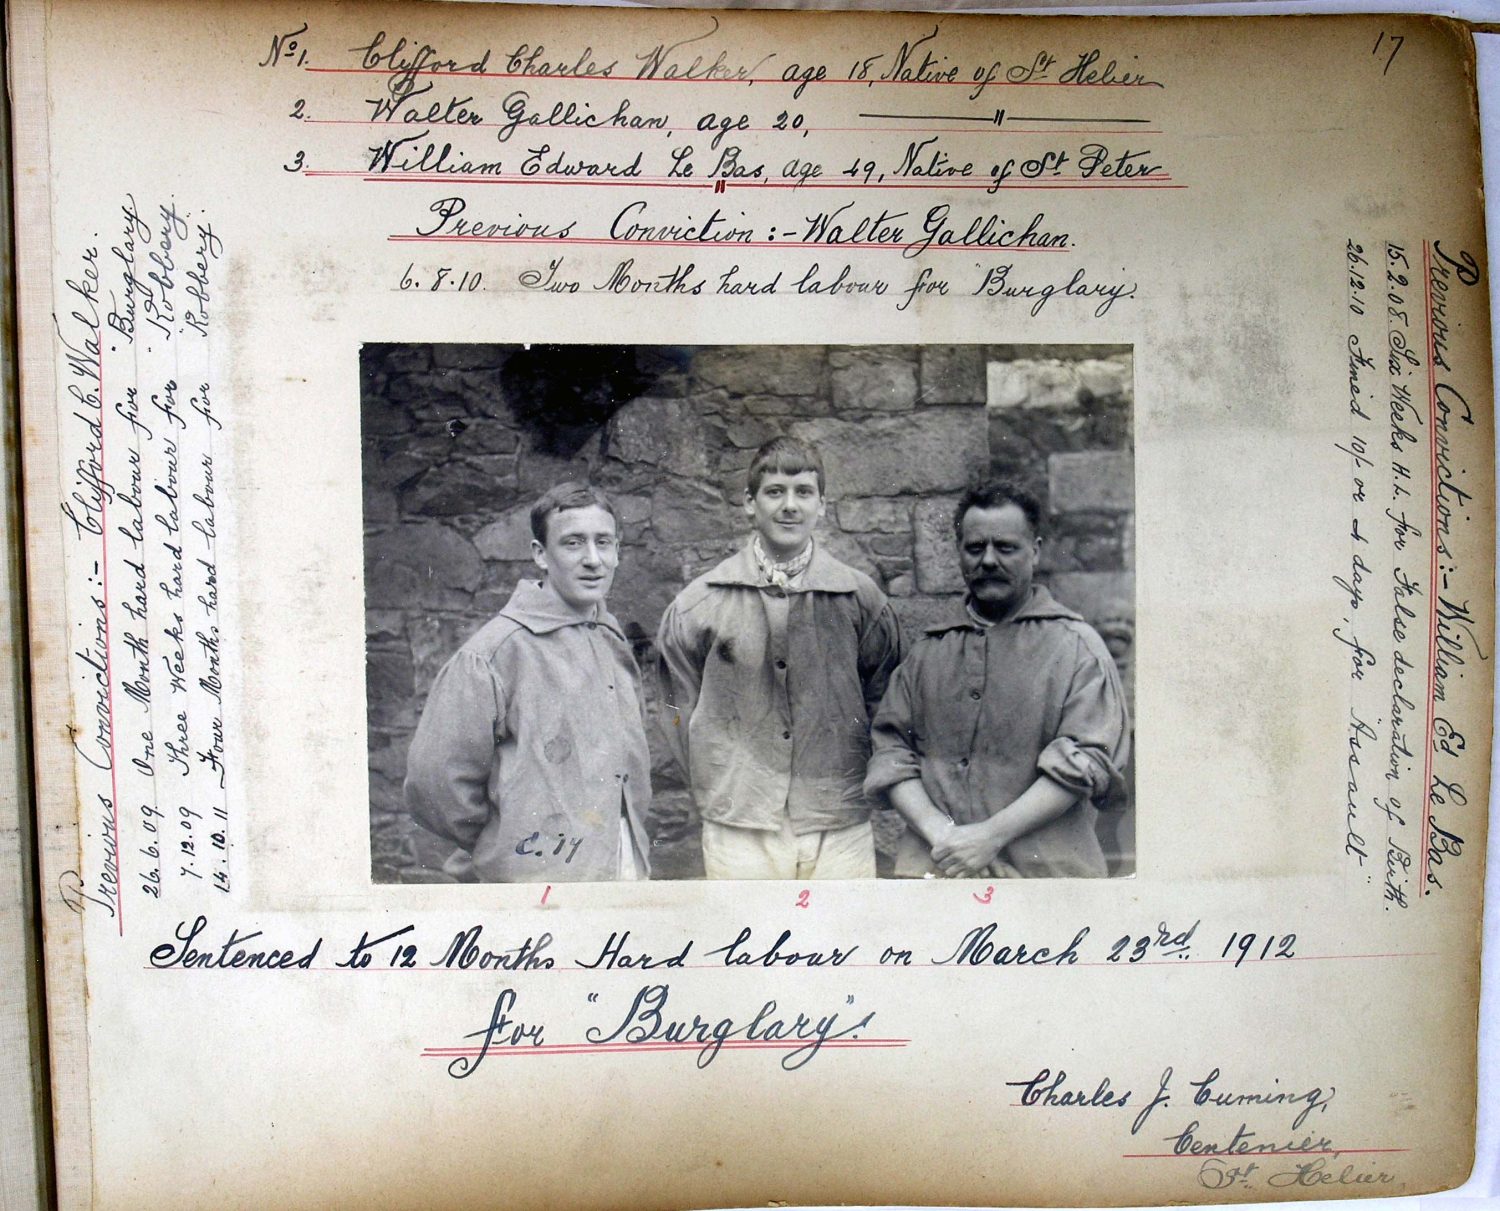 17
No 1. Clifford Charles Walker, age 18, Native of St Helier
2. Walter Gallichan, age 20, —— " ——
3. William Edward Le Bas, age 49, Native of St Peter
"
Previous Conviction :- Walter Gallichan.
6.8.10. Two Months hard labour for "Burglary.
Previous Convictions :- Clifford C. Walker.
26.6.09 One Month hard labour for "Burglary.
7.12.09 Three Weeks hard labour for "Robbery.
14.10.11 Four Months hard labour for "Robbery.
Previous Convictions :- William Ed Le Bas.
15.2.08. Six Weeks H.L. for False declaration of Birth.
26.12.10 Fined 10/- or 4 days, for "Assault"
C. 17
1 2 3
Sentenced to 12 Months Hard labour on March 23rd. 1912
for "Burglary".
Charles J. Cuming,
Centenier,
St. Helier